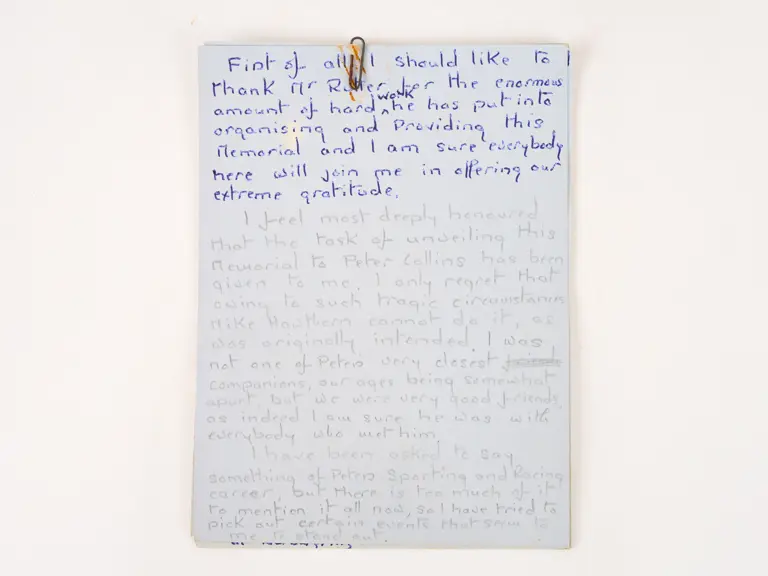 First of all I should like to
thank Mr Rutter for the enormous
amount of hard work he has put into
organising and Providing this
Memorial and I am sure everybody
here will join me in offering our
extreme gratitude.
I feel most deeply honoured
that the task of unveiling this
Memorial to Peter Collins has been
given to me. I only regret that
owing to such tragic circumstances
Mike Hawthorn cannot do it, as
was originally intended. I was
not one of Peters very closest
companions, our ages being somewhat
apart, but we were very good friends
as indeed I am sure he was with
everybody who met him.
I have been asked to say
something of Peters Sporting and Racing
career, but there is too much of it
to mention it all now, so I have tried to
pick out certain events that seem to
me to stand out.